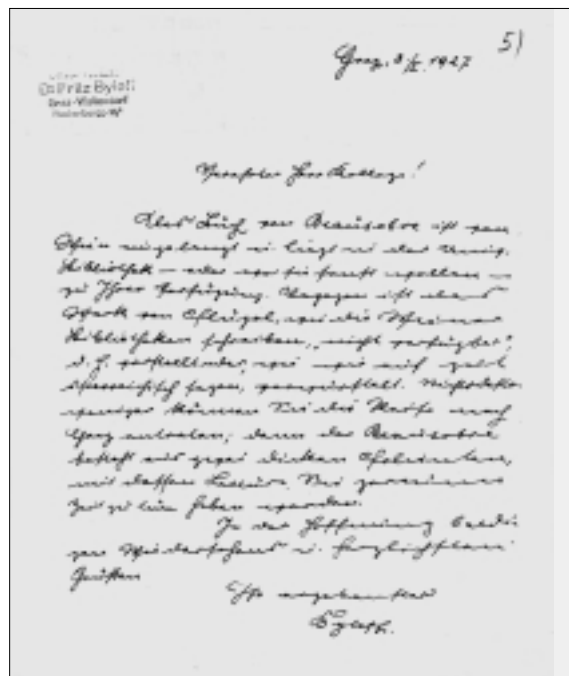 5)
Graz, 8/X. 1927
Dr Fritz Byloff
Graz
Verehrter Herr Kollege!
Das Buch von Beausobre ist von
Wien eingelangt u. liegt in der Univ.
Bibliothek – oder wo sie sonst wollen –
zu Ihrer Verfügung. Dagegen ist das
Werk von Flügel, wie die Wiener
Bibliotheken schreiben, „nicht verfügbar“,
d. h. verstellt oder, wie wir auf gut
österreichisch sagen, verwurstelt. Nichtsdesto-
weniger können Sie die Reise nach
Graz antreten; denn der Beausobre
besteht aus zwei dicken Folianten,
mit dessen Lektüre Sie
Zeit zu tun haben werden.
In der Hoffnung baldi-
gen Wiedersehens u. herzlichsten
Grüßen
Ihr ergebenster
Byloff.